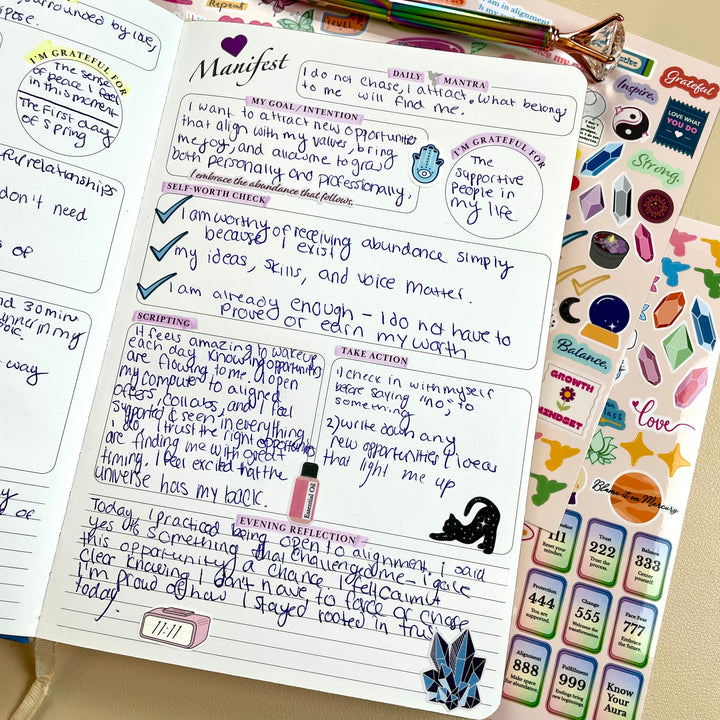 surrounded by love,
purpose.
I'M GRATEFUL FOR
The sense
of peace I feel
in this moment
The First day
of Spring
relationships
don't need
s of
30 min
inner in my
way
of
Manifest
DAILY MANTRA
I do not chase, I attract. What belongs
to me will find me.
MY GOAL/INTENTION
I want to attract new opportunities
that align with my values, bring
me joy, and allow me to grow
both personally and professionally.
I embrace the abundance that follows.
I'M GRATEFUL FOR
The
supportive
people in
my life.
SELF-WORTH CHECK
I am worthy of receiving abundance simply
because I exist
my ideas, skills, and voice matter.
I am already enough – I do not have to
prove or earn my worth
SCRIPTING
It feels amazing to wake up
each day knowing opportunities
are flowing to me. I open
my computer to aligned
offers, collabs, and I feel
supported & seen in everything
I do. I trust the right opportunities
are finding me with great
timing. I feel excited that the
universe has my back.
Essential Oil
TAKE ACTION
1) check in with myself
before saying "no" to
something
2) write down any
new opportunities & ideas
that light me up
EVENING REFLECTION
Today, I practiced being open to alignment. I said
yes to something that challenged me – I gave
this opportunity a chance. I felt calm &
clear knowing I don't have to force or chase
I'm proud of how I stayed rooted in trust
today.
11:11
Repeat
Inspire.
Grateful
LOVE WHAT
YOU DO
Strong.
Balance.
GROWTH
MINDSET
Love
Blame it on Mercury
111
Reset your
mindset.
Trust
222
Trust the
process.
Balance
333
Center
yourself.
Protection
444
You are
supported.
Change
555
Welcome the
transformation.
Face Fear
777
Embrace
the future.
Alignment
888
Make space
for abundance.
Fulfillment
999
Endings bring
new beginnings.
Know
Your
Aura